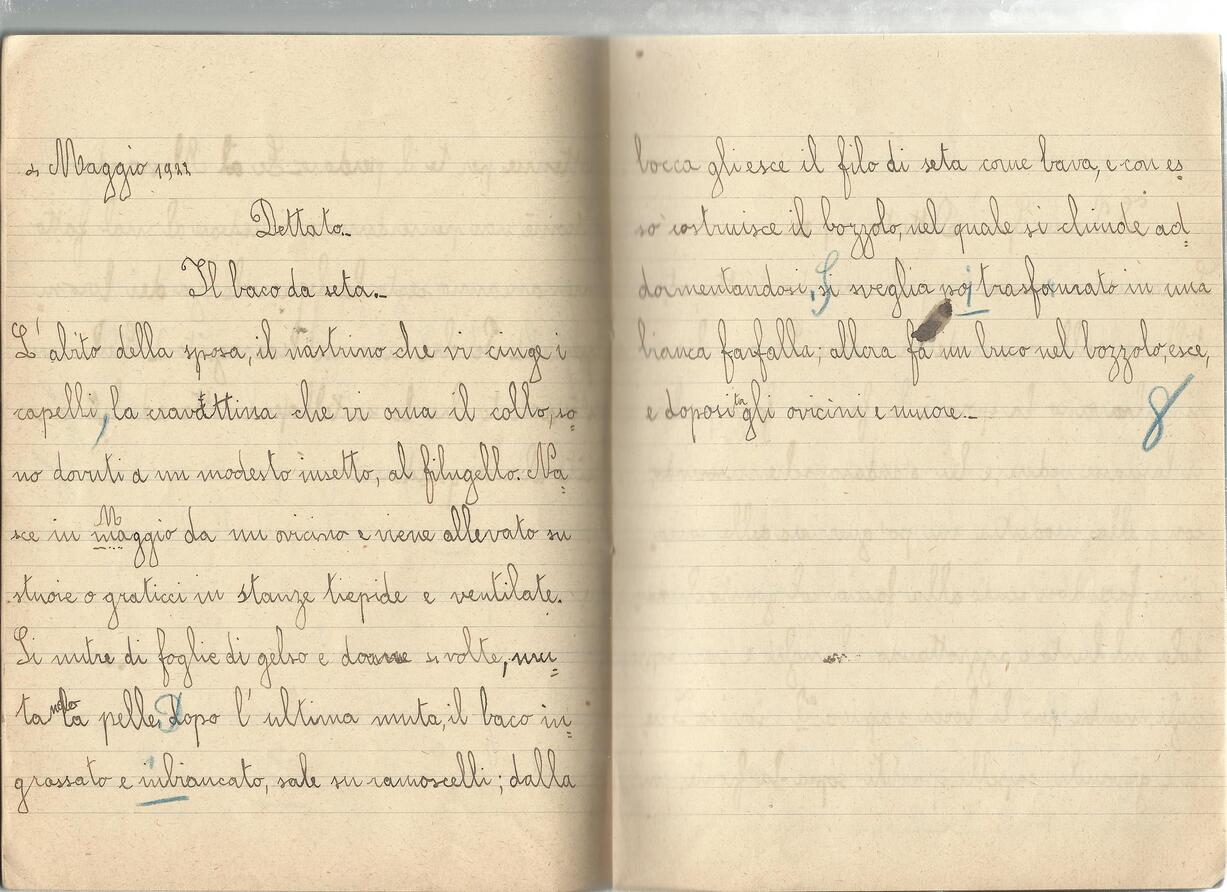 Maggio 1922
Dettato.
Il baco da seta.
L'abito della sposa, il nastrino che vi cinge i
capelli, la cravattina che vi orna il collo, so=
no dovuti a un modesto insetto, al filugello. Na=
sce in Maggio da un ovicino e viene allevato su
stuoie o graticci in stanze tiepide e ventilate.
Si nutre di foglie di gelso e dorme volte, mu=
ta la pelle. Dopo l'ultima muta, il baco in=
grassato e inbiancato, sale su ramoscelli; dalla
bocca gli esce il filo di seta come bava, e con es=
so costruisce il bozzolo, nel quale si chiude ad=
dormentandosi. Si sveglia poi trasformato in una
bianca farfalla; allora fa un buco nel bozzolo, esce,
e doposita gli ovicini e muore.
8